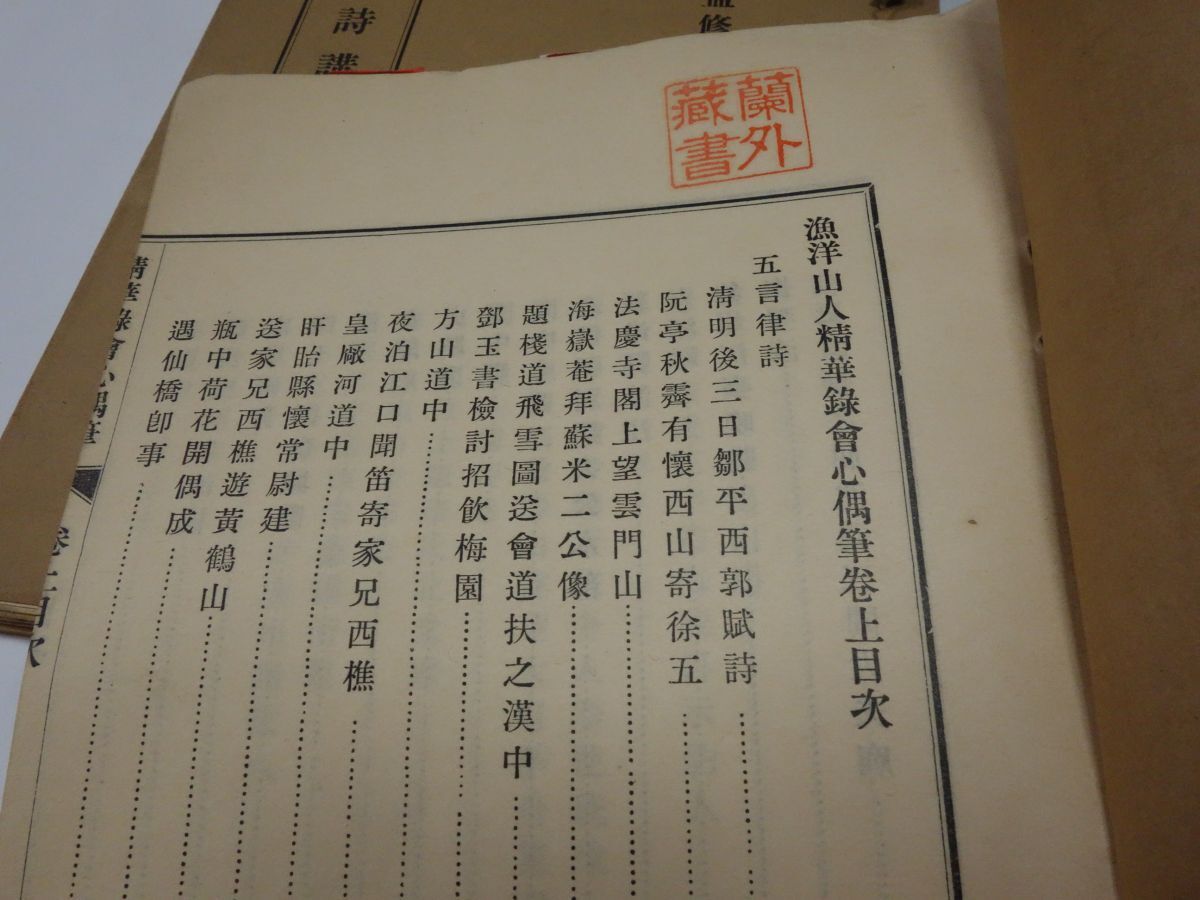 漁洋山人精華錄會心偶筆卷上目次
五言律詩
淸明後三日鄒平西郭賦詩
阮亭秋霽有懷西山寄徐五
法慶寺閣上望雲門山
海嶽菴拜蘇米二公像
題棧道飛雪圖送會道扶之漢中
鄧玉書檢討招飮梅園
方山道中
夜泊江口聞笛寄家兄西樵
皇厰河道中
盱眙縣懷常尉建
送家兄西樵遊黃鶴山
瓶中荷花開偶成
遇仙橋卽事
精華錄會心偶筆
卷上目次
蘭外
藏書
詩
修